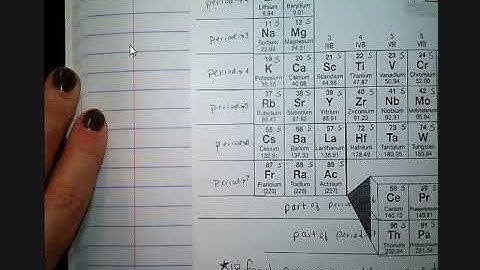 Lithium Beryllium
6.94 9.01
period=3 11 S 12 S
Na Mg
Sodium Magnesium 3 4 5 6
22.99 24.31 IIIB IVB VB VIB
period=4 19 S 20 S 21 S 22 S 23 S 24 S
K Ca Sc Ti V Cr
Potassium Calcium Scandium Titanium Vanadium Chromium
39.10 40.08 44.96 47.87 50.94 52.00
period=5 37 S 38 S 39 S 40 S 41 S 42 S
Rb Sr Y Zr Nb Mo
Rubidium Strontium Yttrium Zirconium Niobium Molybdenum
85.47 87.62 88.91 91.22 92.91 95.94
period=6 55 S 56 S 57 S 72 S 73 S 74 S
Cs Ba La Hf Ta W
Cesium Barium Lanthanum Hafnium Tantalum Tungsten
132.91 137.33 138.91 178.49 180.95 183.84
period=7 87 S 88 S 89 S
Fr Ra Ac
Francium Radium Actinium
(223) (226) (227)
58 S 59 S
part of period 6 Ce Pr
Cerium
140.12 140.91
90 S 91 S
part of period Th Pa
Thorium Protactinium
232.04 231.04
★18